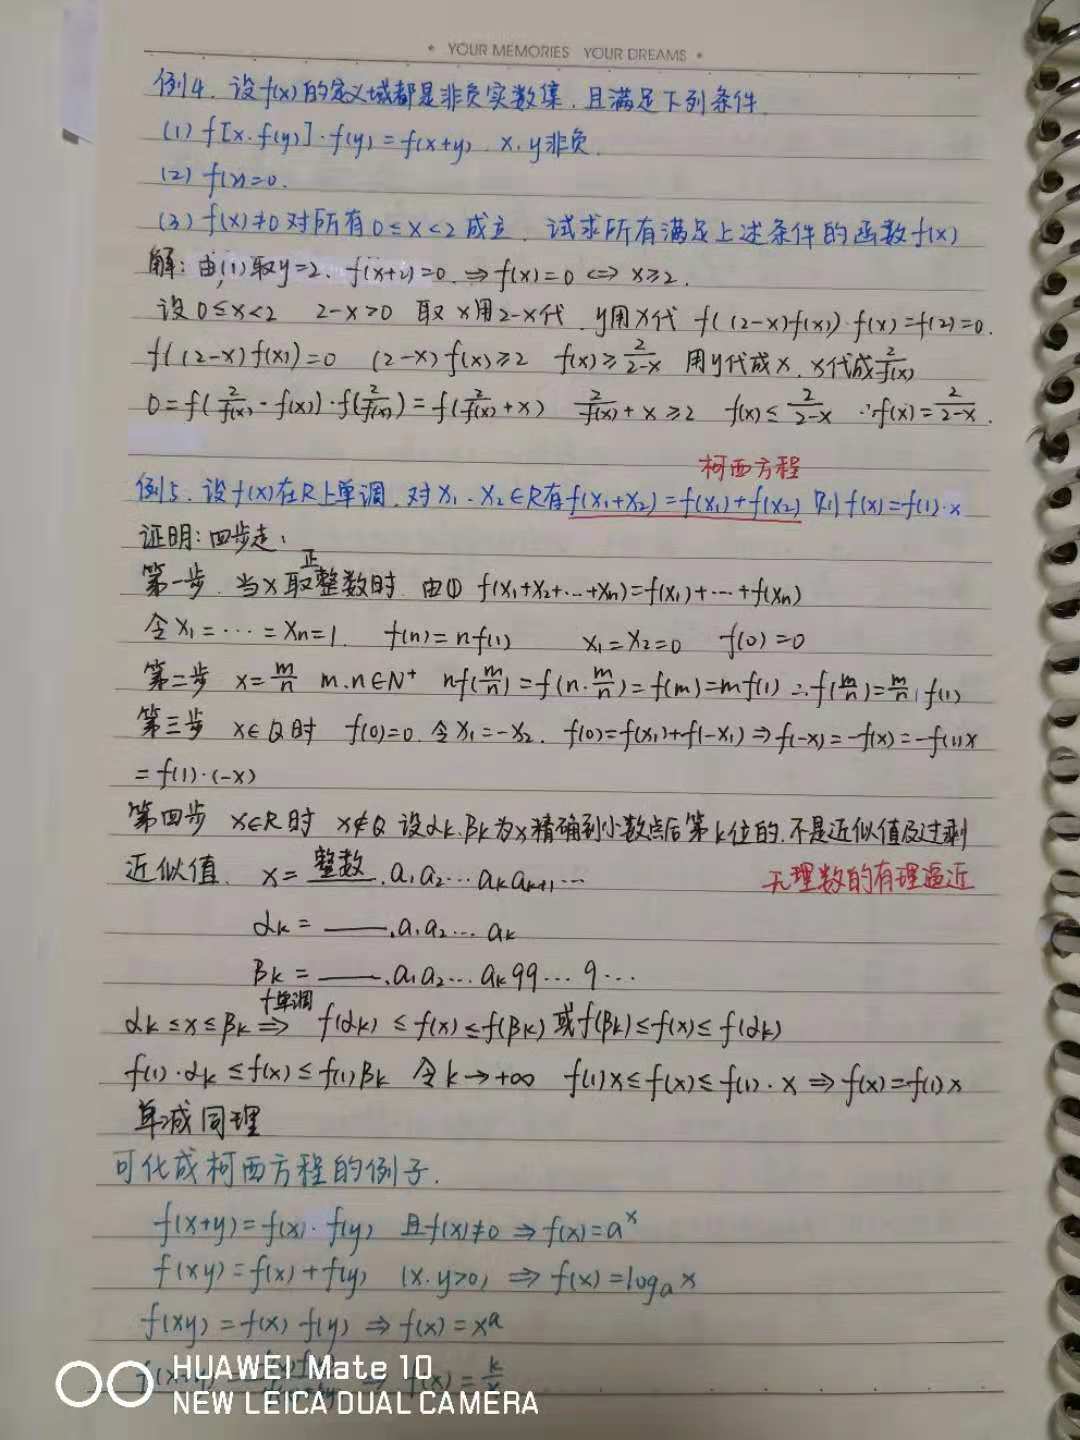 • YOUR MEMORIES YOUR DREAMS •
例4. 设f(x)的定义域都是非负实数集.且满足下列条件.
(1) f[x·f(y)]·f(y)=f(x+y). x.y非负.
(2) f(2)=0.
(3) f(x)≠0对所有0≤x<2成立. 试求所有满足上述条件的函数f(x)
解:由(1)取y=2. f(x+2)=0.⇒f(x)=0⇔x≥2.
设0≤x<2 2-x>0 取x用2-x代.y用x代 f((2-x)f(x))·f(x)=f(2)=0.
f((2-x)f(x))=0 (2-x)f(x)≥2 f(x)≥2/(2-x) 用y代成x.x代成2/f(x)
0=f(2/f(x)·f(x))·f(2/f(x))=f(2/f(x)+x) 2/f(x)+x≥2 f(x)≤2/(2-x) ∴f(x)=2/(2-x).
柯西方程
例5.设f(x)在R上单调.对x₁.x₂∈R有f(x₁+x₂)=f(x₁)+f(x₂) 则f(x)=f(1)·x
证明:四步走:
第一步.当x取正整数时.由① f(x₁+x₂+…+xn)=f(x₁)+…+f(xn)
令x₁=…=xn=1. f(n)=nf(1) x₁=x₂=0 f(0)=0
第二步 x=m/n m.n∈N⁺ nf(m/n)=f(n·m/n)=f(m)=mf(1)∴f(m/n)=m/n f(1)
第三步 x∈Q时 f(0)=0.令x₁=-x₂. f(0)=f(x₁)+f(-x₁)⇒f(-x)=-f(x)=-f(1)x
=f(1)·(-x)
第四步 x∈R时 x∉Q 设αk.βk为x精确到小数点后第k位的.不是近似值及过剩
近似值. x=整数.a₁a₂…akak+1… 无理数的有理逼近
αk=——.a₁a₂…ak
βk=——.a₁a₂…ak99…9…
αk≤x≤βk ⇒ f单调 f(αk)≤f(x)≤f(βk)或f(βk)≤f(x)≤f(αk)
f(1)·αk≤f(x)≤f(1)βk 令k→+∞ f(1)x≤f(x)≤f(1)·x⇒f(x)=f(1)x
单减同理
可化成柯西方程的例子.
f(x+y)=f(x)·f(y) 且f(x)≠0⇒f(x)=aˣ
f(xy)=f(x)+f(y) (x.y>0)⇒f(x)=logₐx
f(xy)=f(x)f(y)⇒f(x)=xᵃ
⇒f(x)=k/x
HUAWEI Mate 10
NEW LEICA DUAL CAMERA